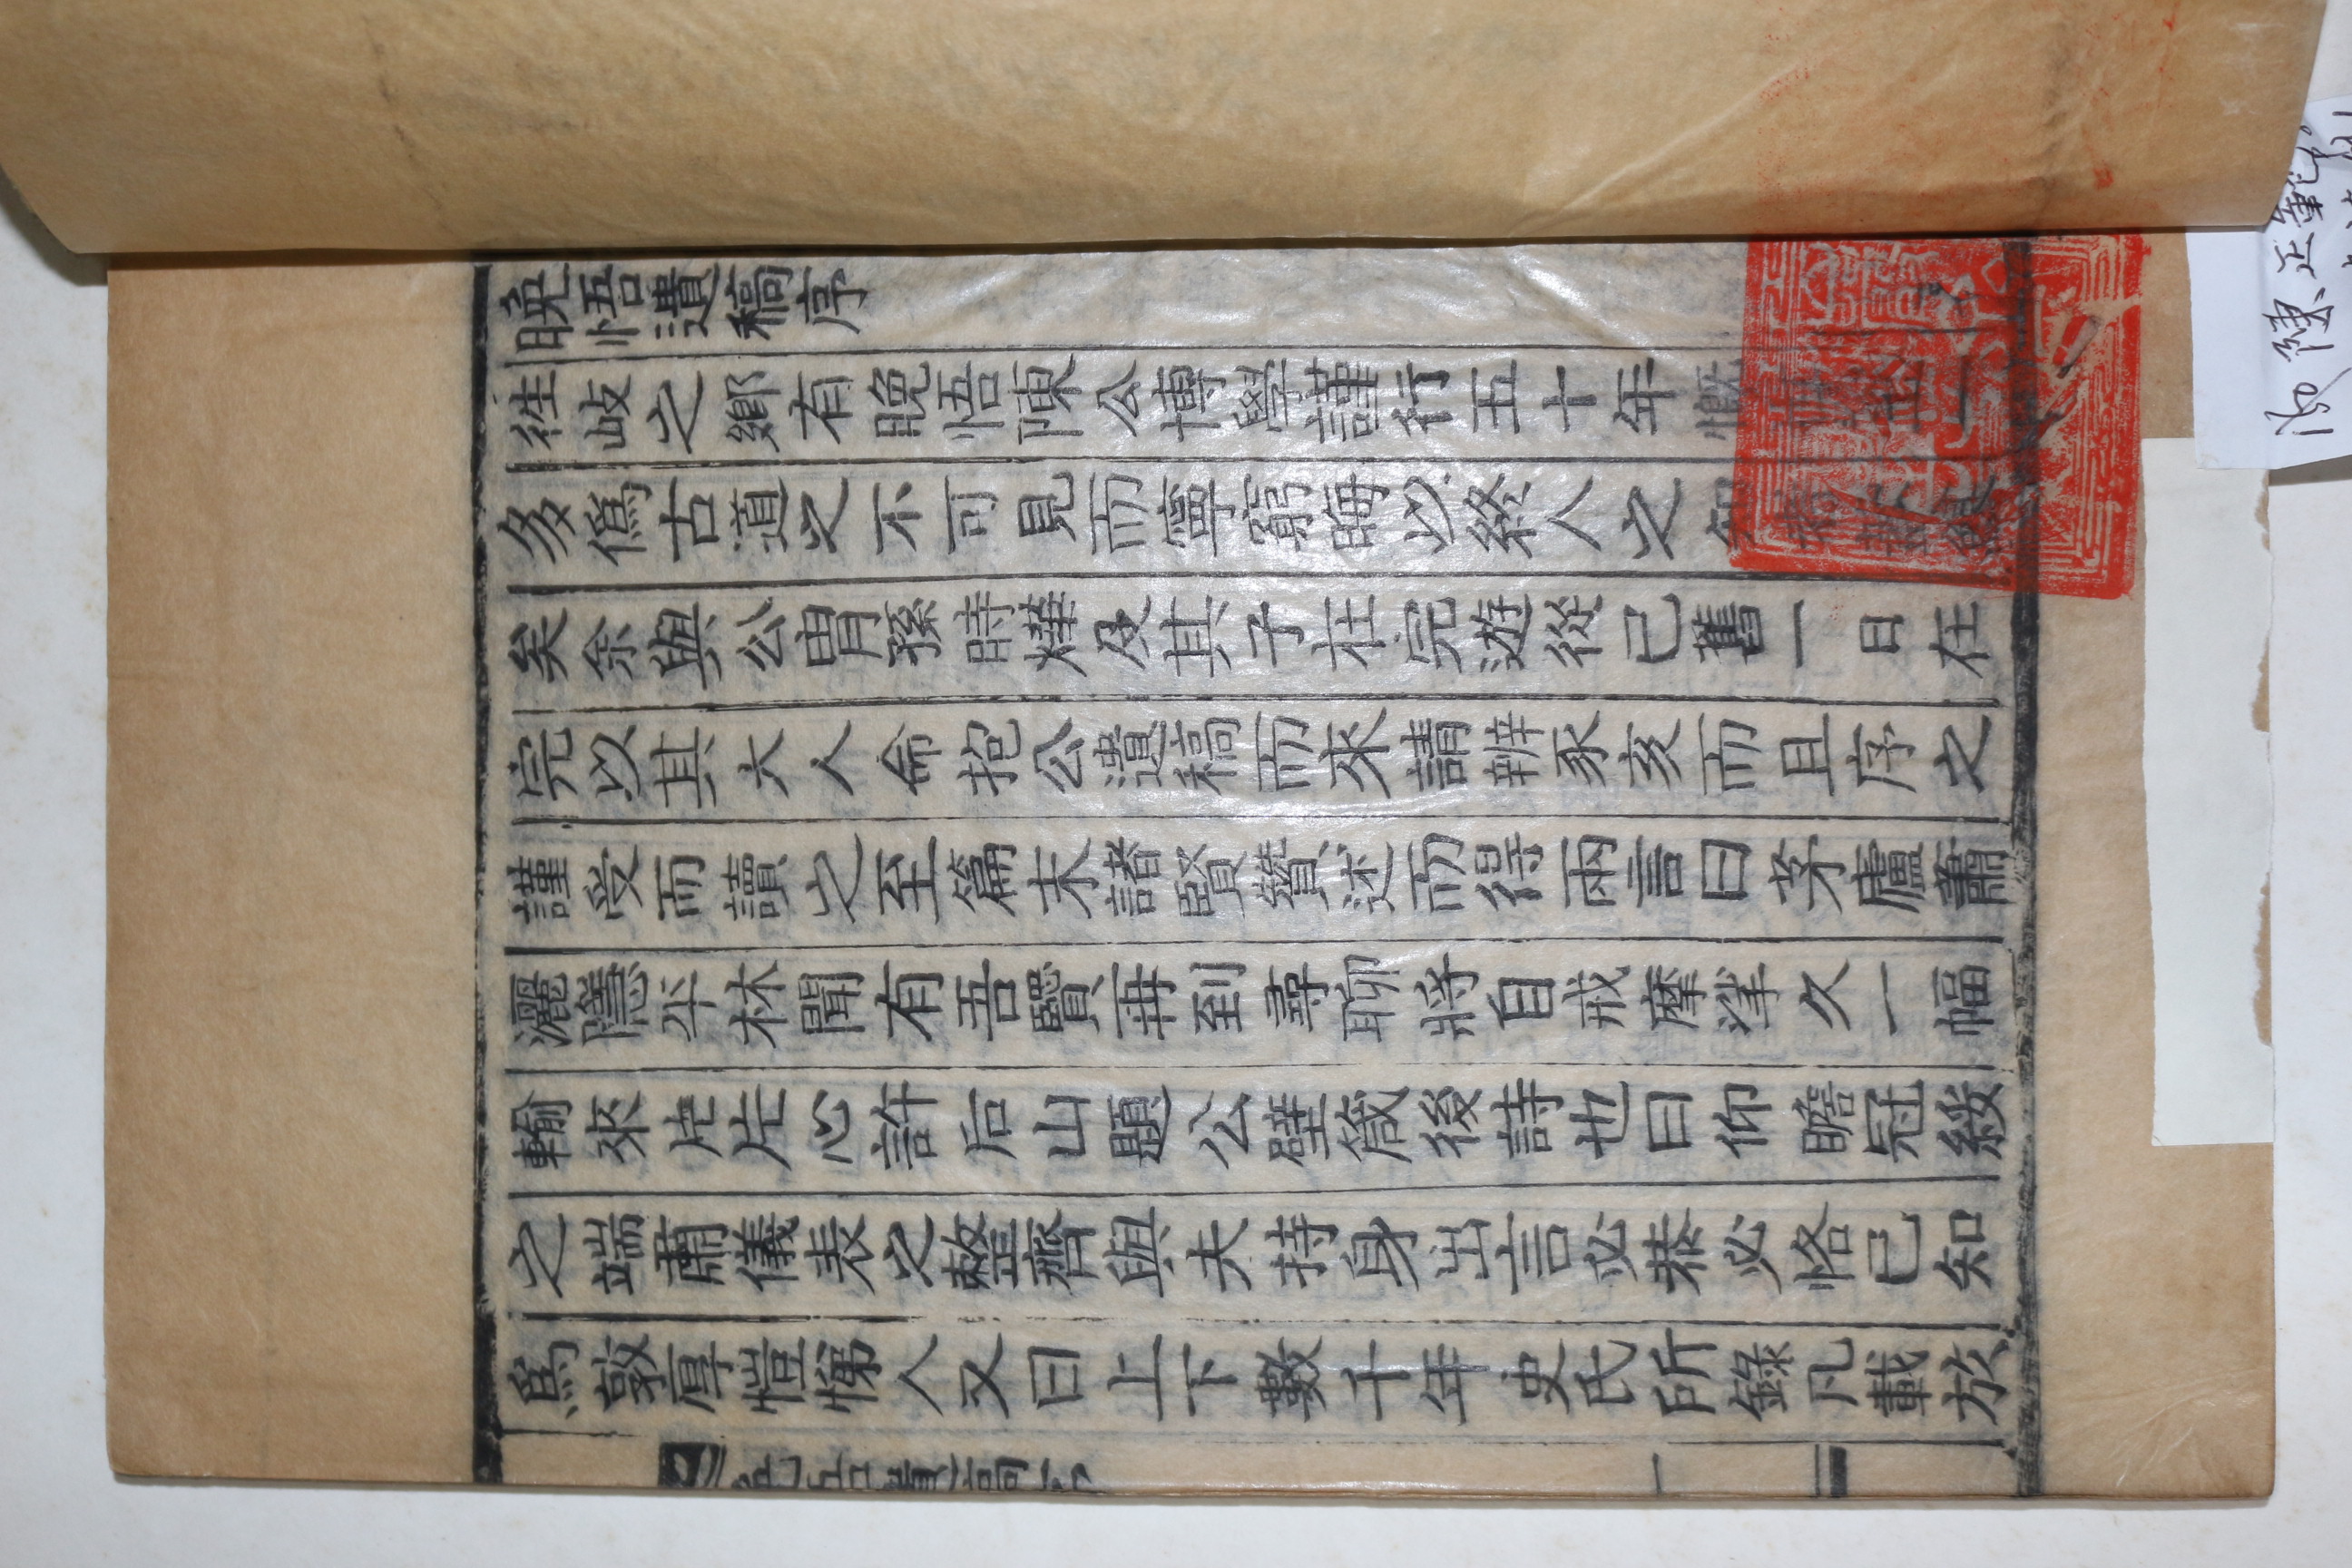 晩悟遺稿序
徃岐之鄉有晩悟陳公博學謹行五十年慨
多僞古道之不可見而寧窮晦以終人之知
矣余與公胄孫時燁及其子在完遊從已舊一日在
完以其大人命抱公遺稿而來請辨豕亥而且序之
謹受而讀之至篇末諸賢贊述而得兩言曰茅廬蕭
灑隱半林聞有吾賢再到尋聊將自戒摩挲久一幅
輸來片片心許后山題公壁箴後詩也曰仰瞻冠綏
之端肅儀表之整齊與夫持身出言必恭必恪已知
爲敦厚愷悌人又曰上下數千年史氏所錄凡載於
晩悟遺稿序
一